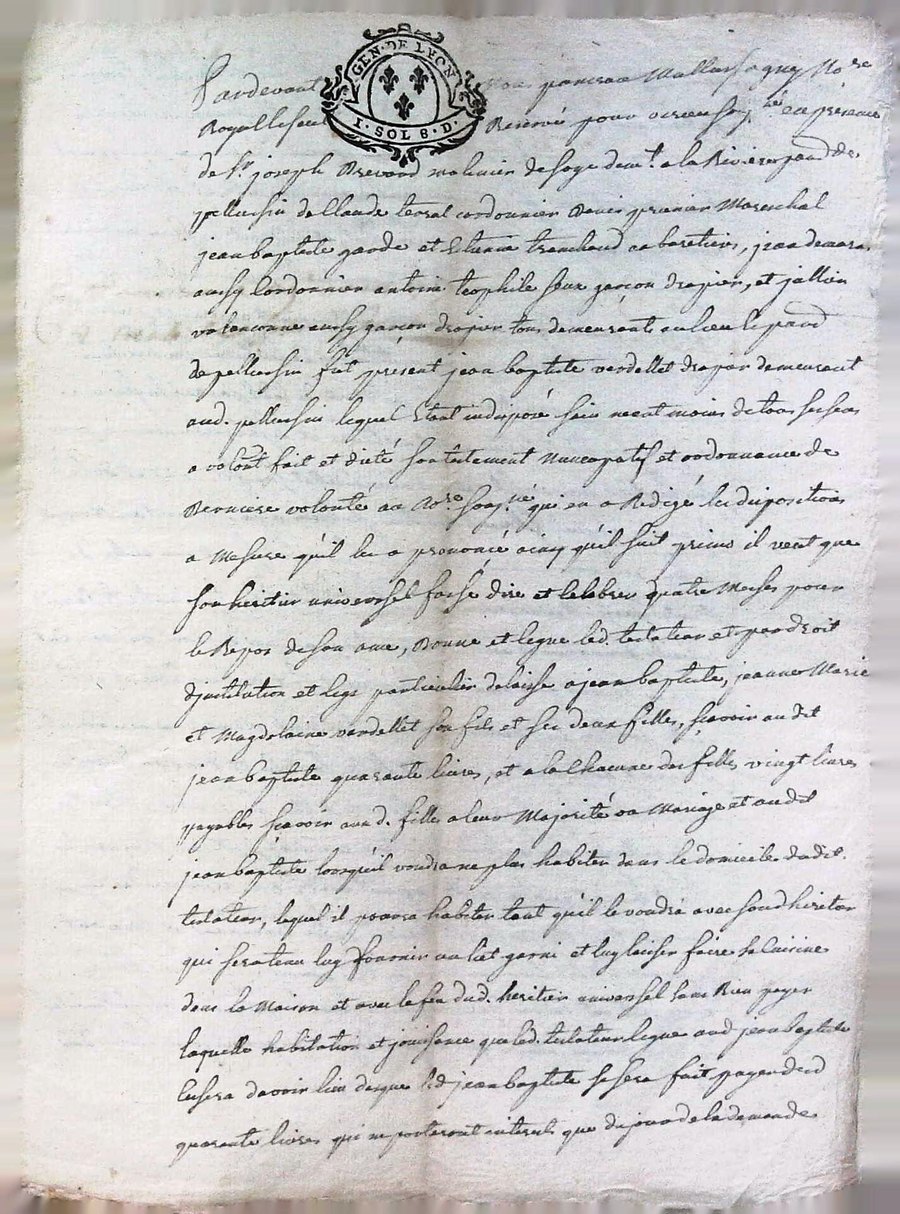 GEN·DE LYON
1·SOL 8·D·
Pardevant nous pancrace Nore
Royal Reservé pour sougné en présence
de Sr joseph Brevard moulinier de soye demt a la Riviere parde de
pellussin de Claude cordonnier prunier Mareschal
jean baptiste garde et Etienne tranchand cabaretiers, jean
aussy Cordonnier antoine teophile seux garçon drapier, et jullien
aussy garçon drapier tous demeurants au lieu et parde
de pellussin fut présent jean baptiste verdellet drapier demeurant
aud. pellussin lequel Etant indisposé sain neant moins de tous ses sens
a volont fait et dicté son testement nuncupatif et ordonnance de
Derniere volonté au Nore sougné qui en a Redigé les dispositions
a Mesure qu'il les a prononcé ainsy qu'il suit primo il veut que
son heritier universel fasse dire et celebrer quatre Messes pour
le Repos de son ame, Donne et legue led. testateur et par droit
d'jnstitution et legs particulier delaisse a jean baptiste, jeanne Marie
et Magdelaine verdellet son fils et ses deux filles, sçavoir au dit
jean baptiste quarante livres, et a la Chacune des filles vingt livres
payables sçavoir aux d. filles a leur Majorité ou Mariage et au dit
jean baptiste lorsqu'il voudra ne plus habiter dans le domicile dudit.
testateur, lequel il pourra habiter tant qu'il le voudra avec sond heritier
qui sera tenu luy fournir un lit garni et luy laisser faire sa Cuisine
dans la Maison et avec le feu dud. heritier universel sans Rien payer
laquelle habitation et jouissance que led. testateur legue aud jean baptiste
cessera d'avoir lieu des que led jean baptiste se sera fait payer desd
quarante livres qui ne porteront interest que du jour de la demande